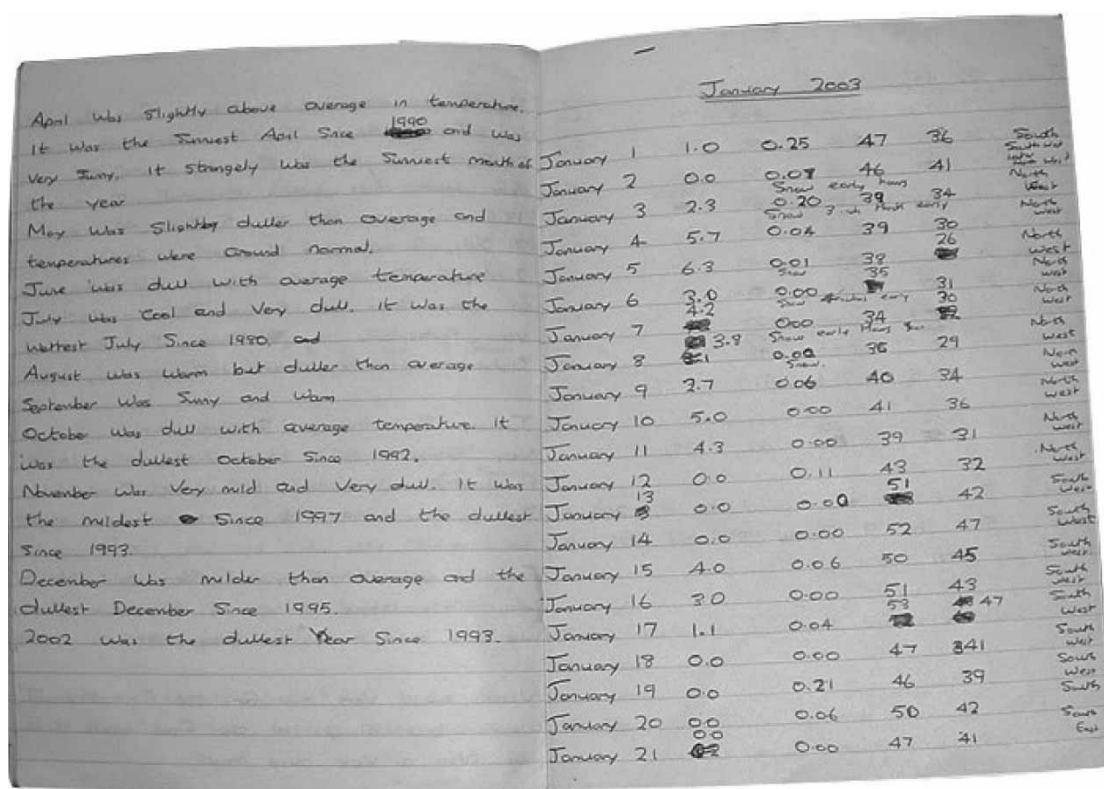 April was slightly above average in temperature.
It was the Sunniest April Since 1990 and was
very Sunny. it strangely was the Sunniest month of
the year
May was slightly duller than average and
temperatures were around normal.
June was dull with average temperature
July was Cool and Very dull. it was the
wettest July Since 1980.
August was warm but duller than average
September was Sunny and warm
October was dull with average temperature. it
was the dullest October Since 1992.
November was very mild and Very dull. It was
the mildest Since 1997 and the dullest
Since 1993.
December was milder than average and the
dullest December Since 1995.
2002 was the dullest Year Since 1993.
January 2003
January 1 1.0 0.25 47 36 South
South West
January 2 0.0 0.07 46 41 North West
Snow early hours
January 3 2.3 0.20 39 34 North West
Snow early
January 4 5.7 0.04 39 30 North West
January 5 6.3 0.01 38 26 North West
Snow
January 6 3.0 0.00 35 31 North West
Snow early
January 7 4.2 000 34 30 North West
Snow early hours
January 8 3.8 0.00 36 29 North West
Snow.
January 9 2.7 0.06 40 34 North West
January 10 5.0 0.00 41 36 North West
January 11 4.3 0.00 39 31 North West
January 12 0.0 0.11 43 32 South West
January 13 0.0 0.00 51 42 South West
January 14 0.0 0.00 52 47 South West
January 15 4.0 0.06 50 45 South West
January 16 3.0 0.00 51 43 South West
January 17 1.1 0.04 53 47 South West
January 18 0.0 0.00 47 41 South West
January 19 0.0 0.21 46 39 South
January 20 0.0 0.06 50 42 South East
January 21 0.0 0.00 47 41